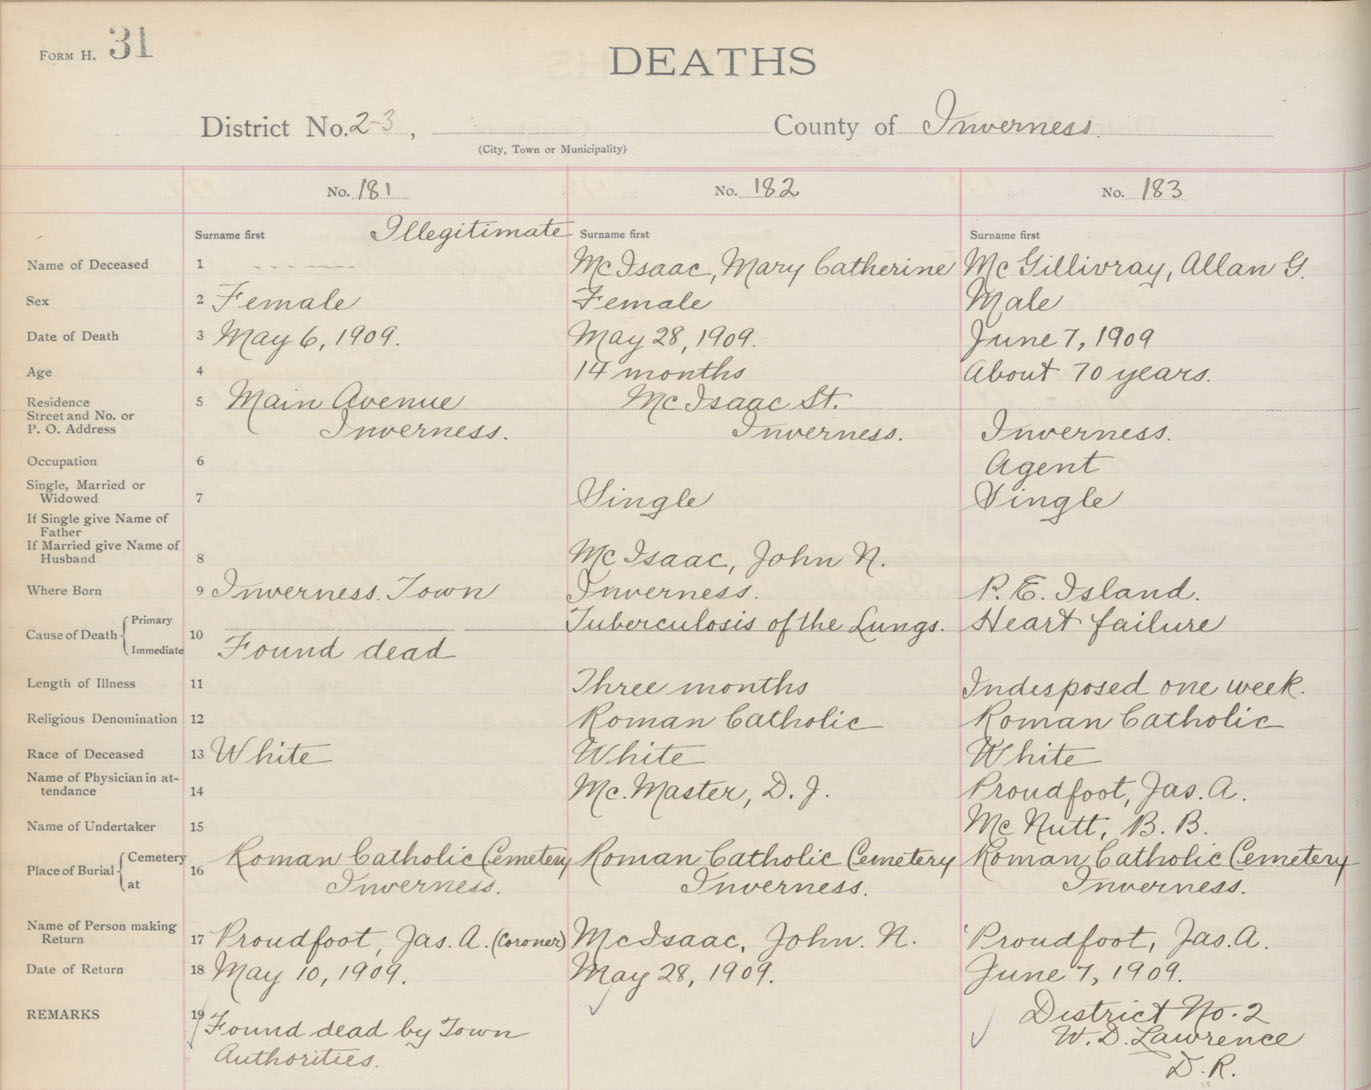 FORM H. 31
DEATHS
District No. 2-3, County of Inverness.
(City, Town or Municipality)
No. 181 No. 182 No. 183
Surname first Illegitimate Surname first Surname first
Name of Deceased 1 McIsaac, Mary Catherine McGillivray, Allan G.
Sex 2 Female Female Male
Date of Death 3 May 6, 1909. May 28, 1909. June 7, 1909
Age 4 14 months About 70 years.
Residence 5 Main Avenue McIsaac St.
Street and No. or
P. O. Address Inverness. Inverness. Inverness.
Occupation 6 Agent
Single, Married or
Widowed 7 Single Single
If Single give Name of
Father
If Married give Name of
Husband 8 McIsaac, John N.
Where Born 9 Inverness Town Inverness. P. E. Island.
Cause of Death Primary 10 Tuberculosis of the Lungs. Heart failure
Immediate Found dead
Length of Illness 11 Three months Indisposed one week.
Religious Denomination 12 Roman Catholic Roman Catholic
Race of Deceased 13 White White White
Name of Physician in at-
tendance 14 Mc.Master, D. J. Proudfoot, Jas. A.
Name of Undertaker 15 McNutt, B. B.
Place of Burial Cemetery 16 Roman Catholic Cemetery Roman Catholic Cemetery Roman Catholic Cemetery
at Inverness. Inverness. Inverness.
Name of Person making
Return 17 Proudfoot, Jas. A. (Coroner) McIsaac, John. N. Proudfoot, Jas. A.
Date of Return 18 May 10, 1909. May 28, 1909. June 7, 1909.
REMARKS 19 Found dead by Town District No. 2
Authorities. W. D. Lawrence
D. R.